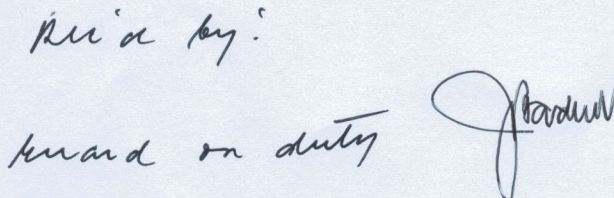 Rec'd by:
guard on duty